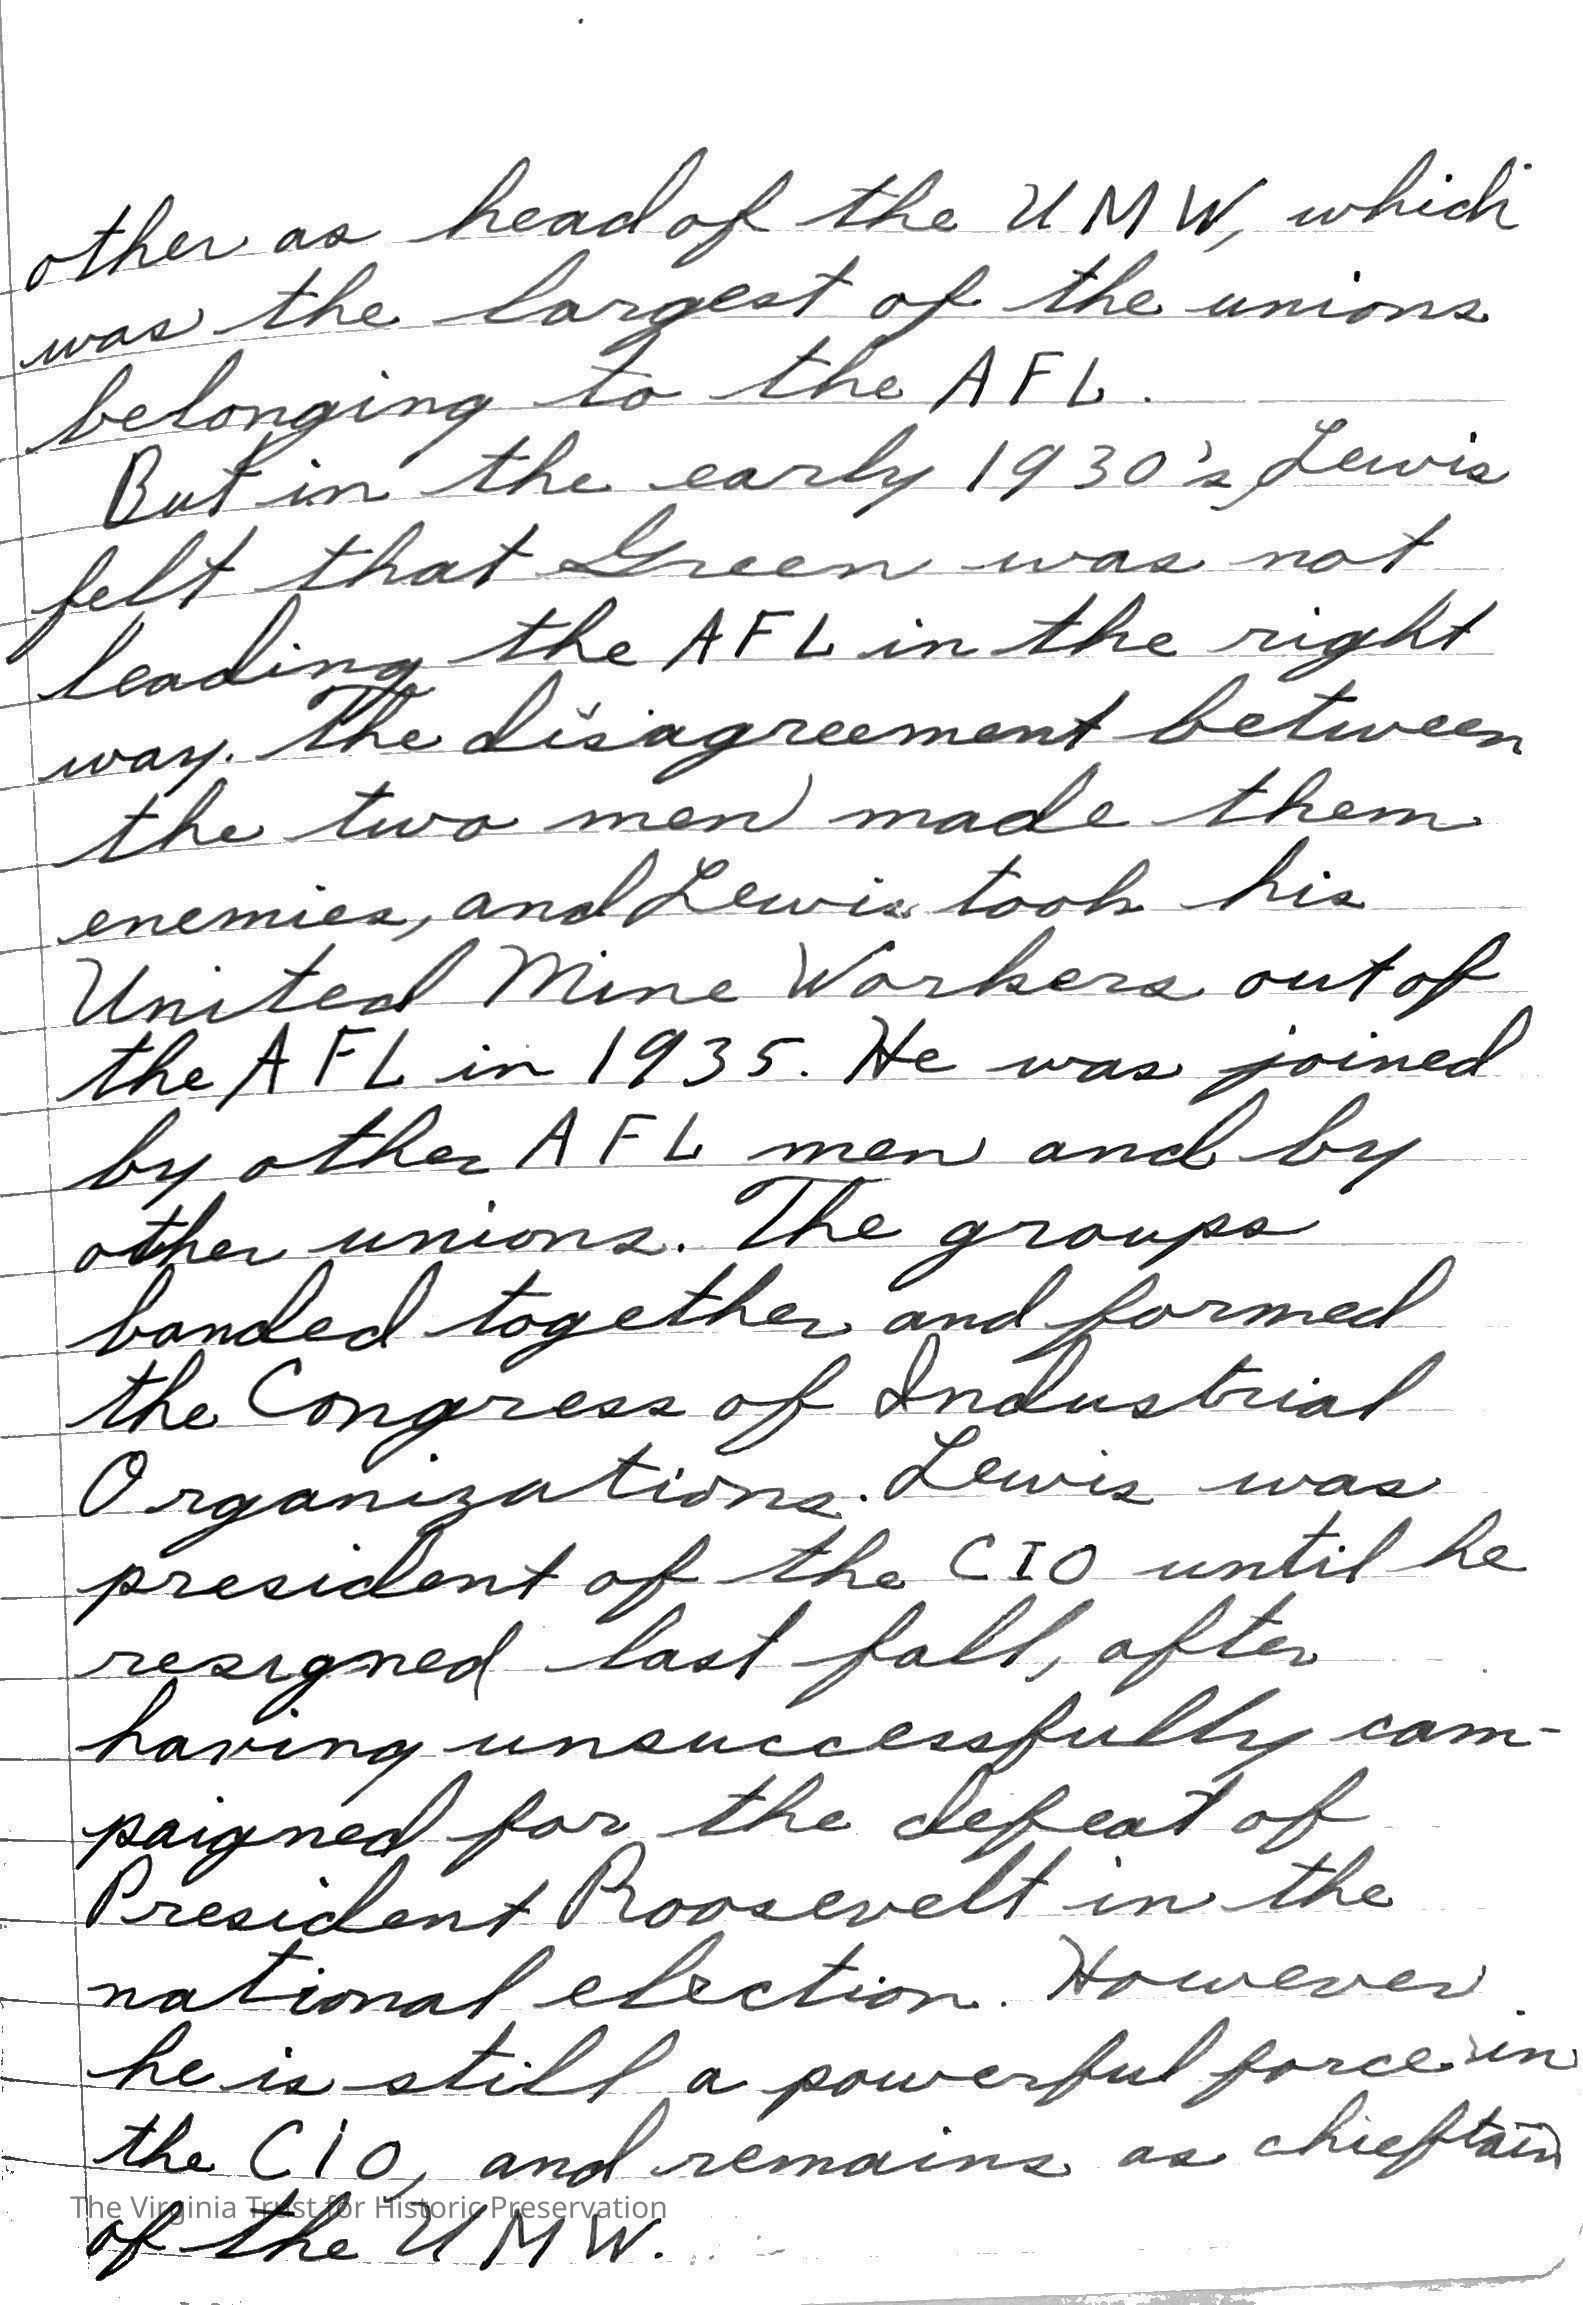 other as head of the UMW, which
was the largest of the unions
belonging to the AFL.
But in the early 1930's, Lewis
felt that Green was not
leading the AFL in the right
way. The disagreement between
the two men made them
enemies, and Lewis took his
United Mine Workers out of
the AFL in 1935. He was joined
by other AFL men and by
other unions. The groups
banded together and formed
the Congress of Industrial
Organizations. Lewis was
president of the CIO until he
resigned last fall, after
having unsuccessfully cam-
paigned for the defeat of
President Roosevelt in the
national election. However
he is still a powerful force in
the CIO, and remains as chieftain
The Virginia Trust for Historic Preservation
of the UMW.